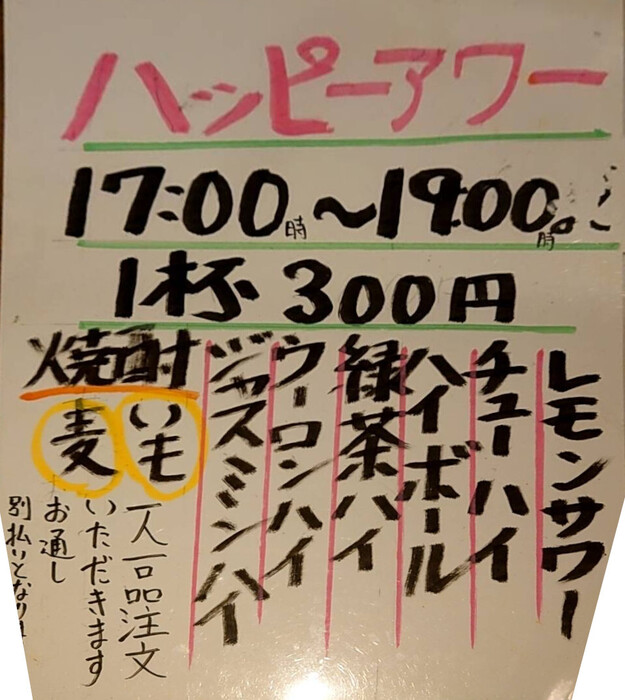 ハッピーアワー
17:00時〜19:00時
1杯300円
レモンサワー
チューハイ
ハイボール
緑茶ハイ
ウーロンハイ
ジャスミンハイ
焼酎
いも
麦
一人一品注文
いただきます
お通し
別払いとなりま